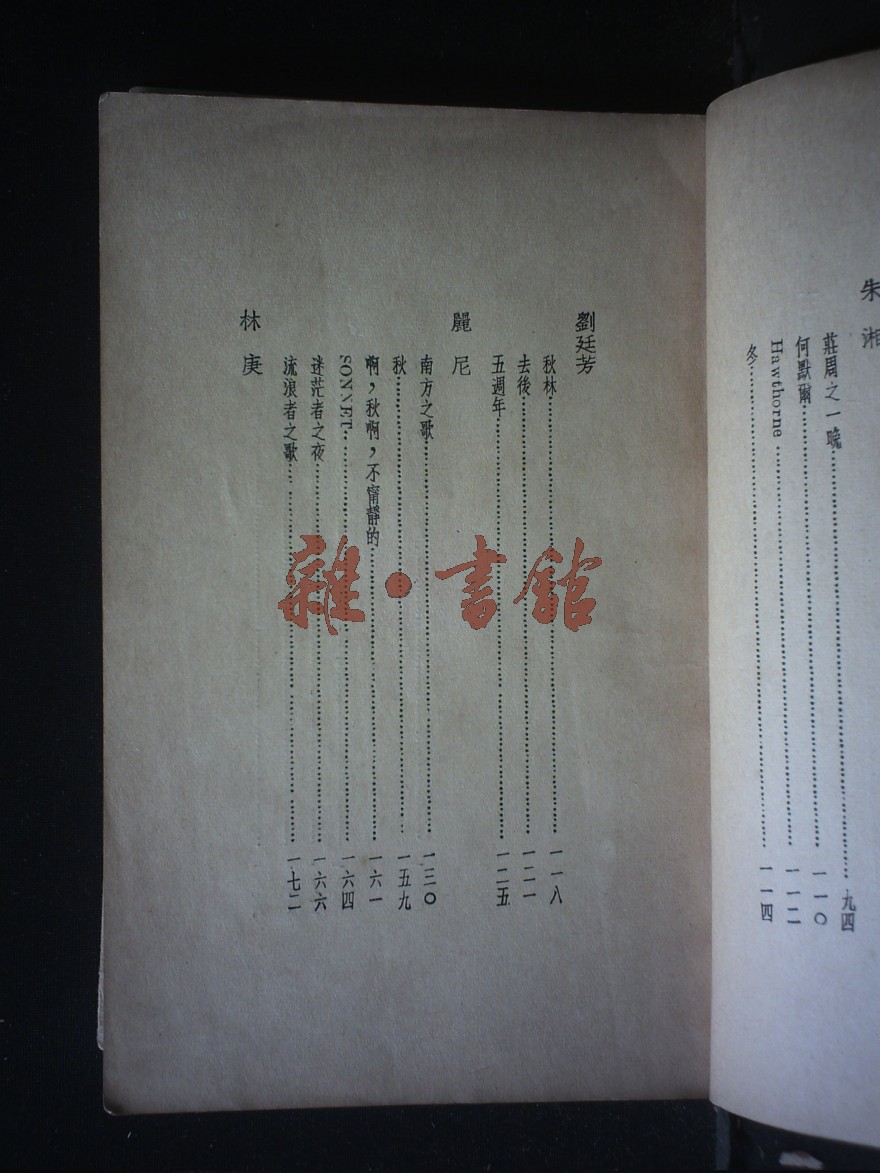 朱湘
莊周之一晚……九四
何默爾……一一〇
Hawthorne……一一二
冬……一一四
劉廷芳
秋林……一一八
去後……一二一
五週年……一二五
麗尼
南方之歌……一三〇
秋……一五九
啊，秋啊，不甯靜的……一六一
SONNET……一六四
迷茫者之夜……一六六
流浪者之歌……一七二
林庚
雜·書館